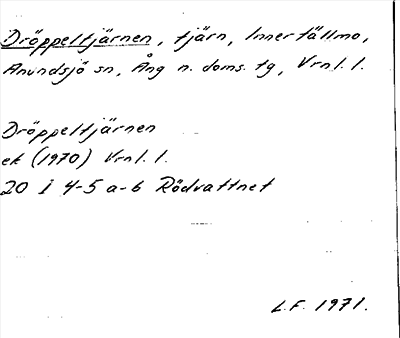 Dröppeltjärnen, tjärn, Innertällmo,
Anundsjö sn, Ång n. doms. tg, Vrnl. l.
Dröppeltjärnen
ek (1970) Vrnl. l.
20 I 4-5 a-b Rödvattnet
L.F. 1971.